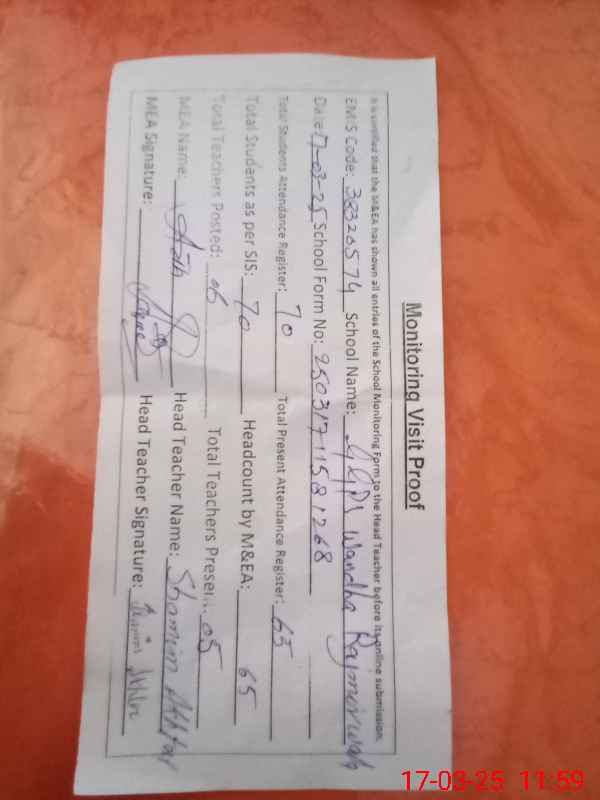 Monitoring Visit Proof
It is certified that the M&EA has shown all entries of the School Monitoring Form to the Head Teacher before its online submission.
EMIS Code: 38320574 School Name: GGPS Wandha Rajmerwala
Date: 17-03-25 School Form No: 2503171158 1268
Total Students Attendance Register: 70 Total Present Attendance Register: 65
Total Students as per SIS: 70 Headcount by M&EA: 65
Total Teachers Posted: 06 Total Teachers Present: 05
MEA Name: Head Teacher Name: Shamim Akhtar
MEA Signature: Head Teacher Signature: Shamim Akhtar
17-03-25 11:59